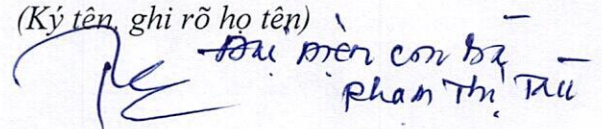 (Ký tên, ghi rõ họ tên)
Đại Diện con bà
Phạm Thị Tấu